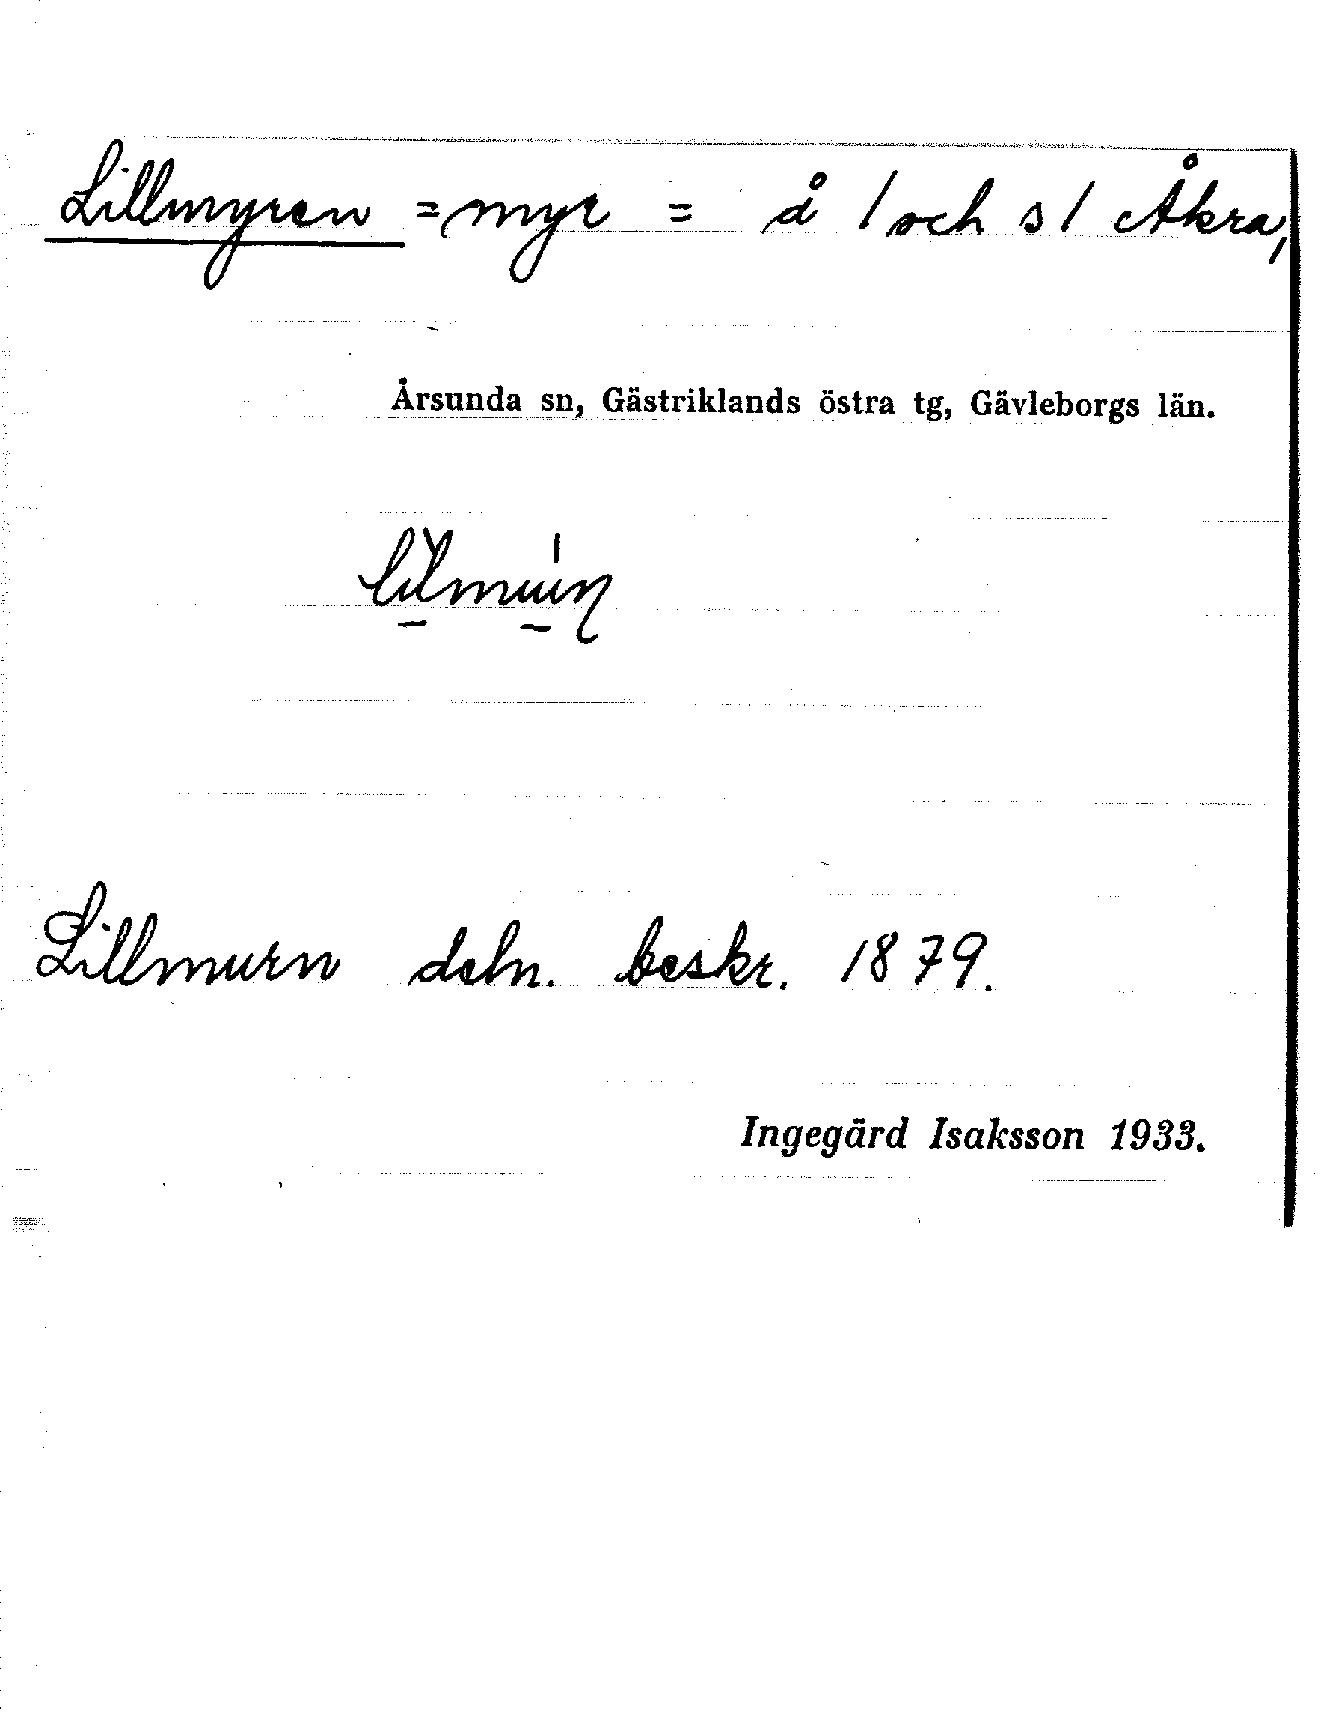 Lillmyren = myr = å / och s / Åkra,
Årsunda sn, Gästriklands östra tg, Gävleborgs län.
Lillmurn deln. beskr. 1879.
Ingegärd Isaksson 1933.